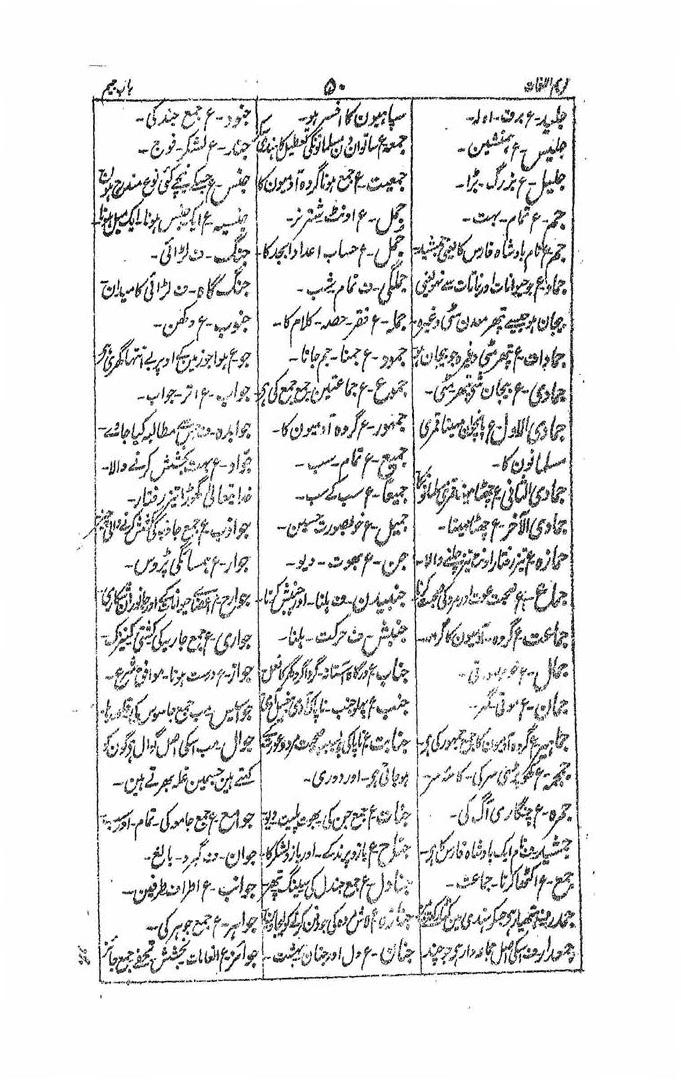 کریم اللغات
۵۰
باب جیم
جلید۔ ع برف۔ اولہ۔
جلیس۔ ع ہمنشین۔
جلیل۔ ع بزرگ۔ بڑا۔
جم۔ ع تمام۔ بہت۔
جم ع نام بادشاہ فارس کا یعنی جمشید۔
جماد۔ ع جو حیوانات اور نباتات سے نہو یعنی
بیجان ہو جیسے پتھر معدن مٹی وغیرہ۔
جمادات۔ ع پتھر مٹی وغیرہ جو بیجان ہو
جمادی۔ ع بیجان شی پتھر مٹی۔
جمادی الاول۔ ع پانچواں مہینا قمری
مسلمانون کا۔
جمادی الثانی۔ ع چھٹا مہینا قمری مسلمانونکا
جمادی الآخر۔ ع چھٹا مہینا۔
جمازہ۔ ع تیز رفتار اونٹ تیز چلنے والا۔
جماع۔ ع صحبت عورت اور مرد کی صحبت کرنا
جماعت۔ ع گروہ۔ آدمیون کا گروہ۔
جمال۔ ع خوبصورتی۔
جمان۔ ع موتی۔
جماہیر۔ ع گروہ آدمیون کا جمع جمہور کی ہی۔
جمجمہ۔ ع کھوپڑی سر کی۔ کاسہ سر
جمرہ۔ ع چنگاری آگ کی۔
جمشید۔ ف نام ایک بادشاہ فارس کا ہی۔
جمع۔ ع اکٹھا کرنا۔ جماعت۔
جمعدار۔ ف اسکی اصل جماعہ دار ہی جو چند
سپاہیون کا افسر ہو۔
جمعہ ع ساتوان دن مسلمانونکی تعطیل کا
جمعیت۔ ع جمع ہونا گروہ آدمیون کا
جمل۔ ع اونٹ شتر نر۔
جمل۔ ع حساب اعداد ابجد کا۔
جملگی۔ ف تمام سب۔
جملہ۔ ع فقرہ۔ حصہ۔ کلام کا۔
جمود۔ ع جمنا۔ جم جانا۔
جموع۔ ع جماعتین جمع جمع کی ہی
جمہور۔ ع گروہ آدمیون کا۔
جمیع۔ ع تمام۔ سب۔
جمیعاً۔ ع سب کے سب۔
جمیل۔ ع خوبصورت حسین۔
جن۔ ع بھوت۔ دیو۔
جنبیدن۔ ف ہلنا۔ اور جنبش کرنا۔
جنبش۔ ف حرکت۔ ہلنا۔
جناب ع درگاہ آستانہ۔ گردا گرد گھر کا
جنب۔ ع پہلو جنب۔ ناپاک آدمی
جنابت۔ ع ناپاکی جو بسبب صحبت مرد و عورت کے
ہو جاتی ہی۔ اور دوری۔
جنات۔ ع جمع جن کی۔ بھوت پلیت دیو
جناح۔ ع بازو پرند کے۔ اور بازو لشکر کا۔
جنادل۔ ع جمع جندل کی
جنازہ۔ ع لاش مردہ کی جو دفن کرنے کو لیجاوین
جنان۔ ع دل اور جنان بہشت۔
جنود۔ ع جمع جند کی۔
جند۔ ع لشکر۔ فوج۔
جنس۔ ع جسکے نیچے کئی نوع مندرج ہون
جنسیت۔ ع ایک جنس ہونا۔ ایک میل ہونا
جنگ۔ ف لڑائی۔
جنگ گاہ۔ ف لڑائی کا میدان
جنوب۔ ع دکھن۔
جو۔ ع ہوا جو زمین کے اوپر بے انتہا گھری ہی
جواب۔ ع اتر۔ جواب۔
جوابدہ۔ ف جس سے مطالبہ کیا جائے۔
جواد۔ ع بہت بخشش کرنے والا۔
خدا تعالی گھوڑا تیز رفتار۔
جواذب۔ ع جمع جاذبہ کی کشش کرنے والی
جوار۔ ع ہمسائگی پڑوس۔
جوارح۔ ع اعضا حیوانات کے اور جانوران شکاری
جواری۔ ع جمع جاریہ کی کشتی کنیزک۔
جواز۔ ع درست ہونا۔ موافق شرع۔
جواسیس۔ ع جمع جاسوس کی
جوال۔ معرب اسکی اصل گوال ہی گون کو
کہتے ہین جسمین غلہ بھرتے ہین۔
جوامع۔ ع جمع جامعہ کی۔ تمام۔ اور سب
جوان۔ ف گبرو۔ بالغ۔
جوانب۔ ع اطراف طرفین۔
جواہر۔ ع جمع جوہر کی۔
جوائز۔ ع انعامات بخشش تحفے جمع جائزہ